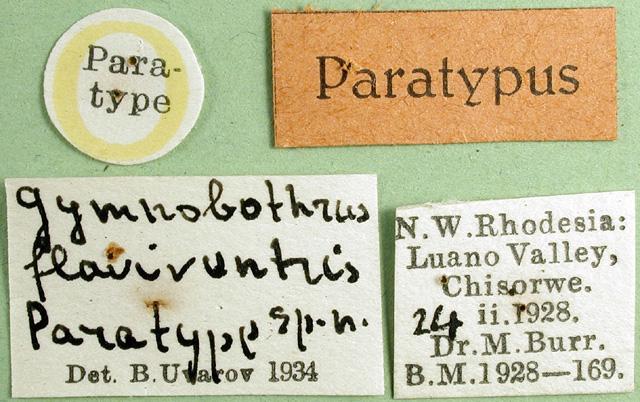 Para-
type
Paratypus
Gymnobothrus
flaviventris
Paratype sp.n.
Det. B. Uvarov 1934
N.W. Rhodesia:
Luano Valley,
Chisorwe.
24 ii.1928.
Dr. M. Burr.
B.M.1928—169.